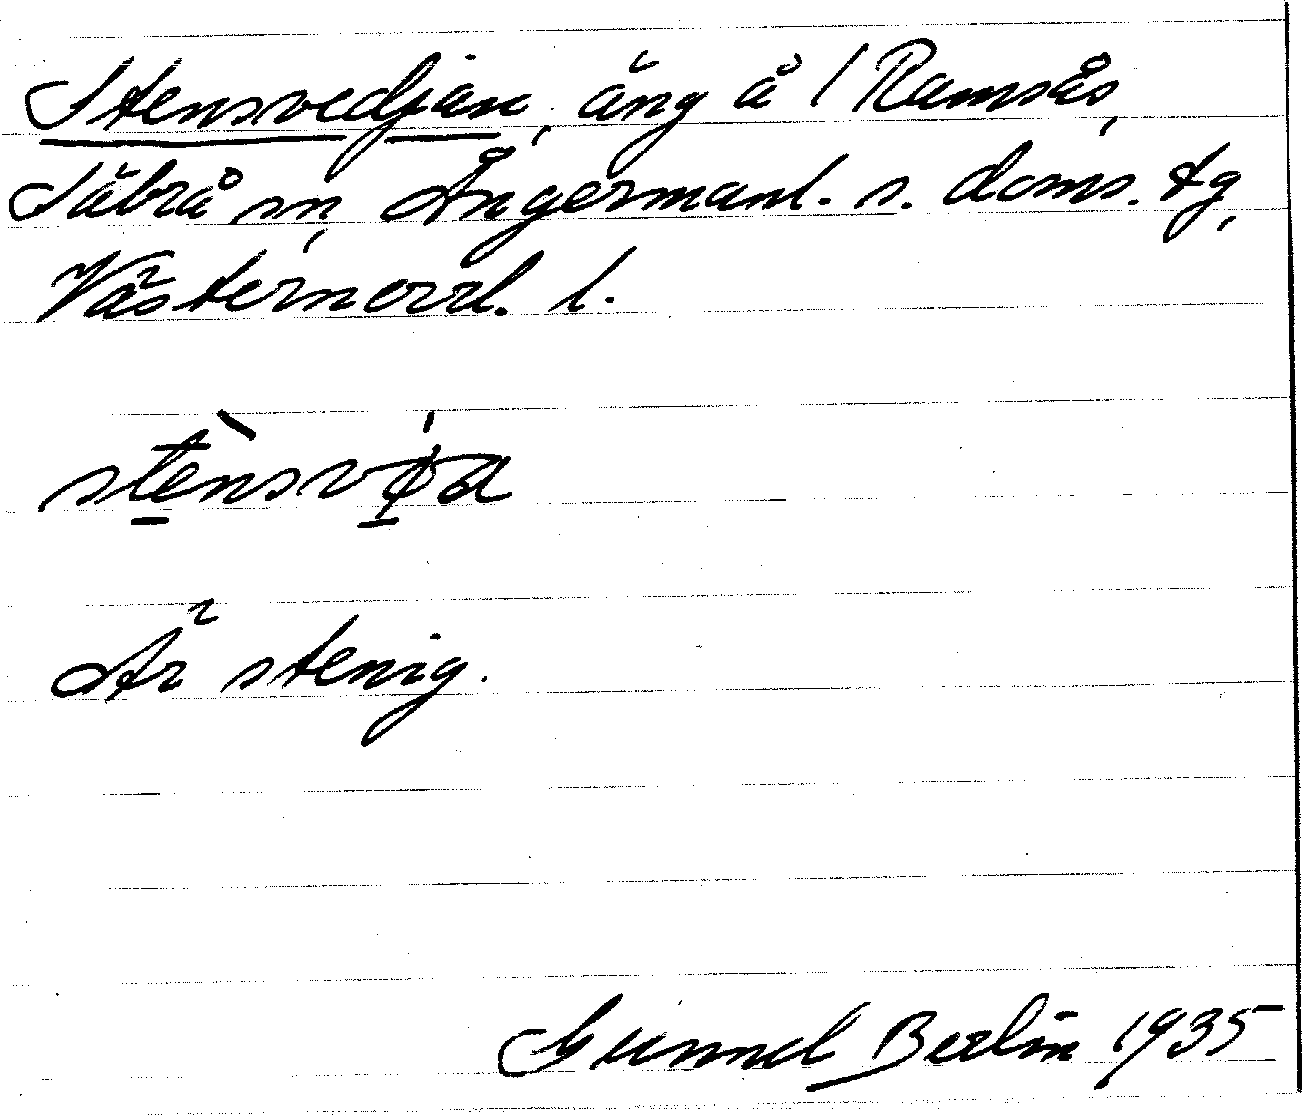 Stensvedjan, äng å 1 Ramsås,
Säbrå sn, Ångermanl. s. doms. tg,
Västernorrl. l.
Är stenig.
Gunnel Berlin 1935